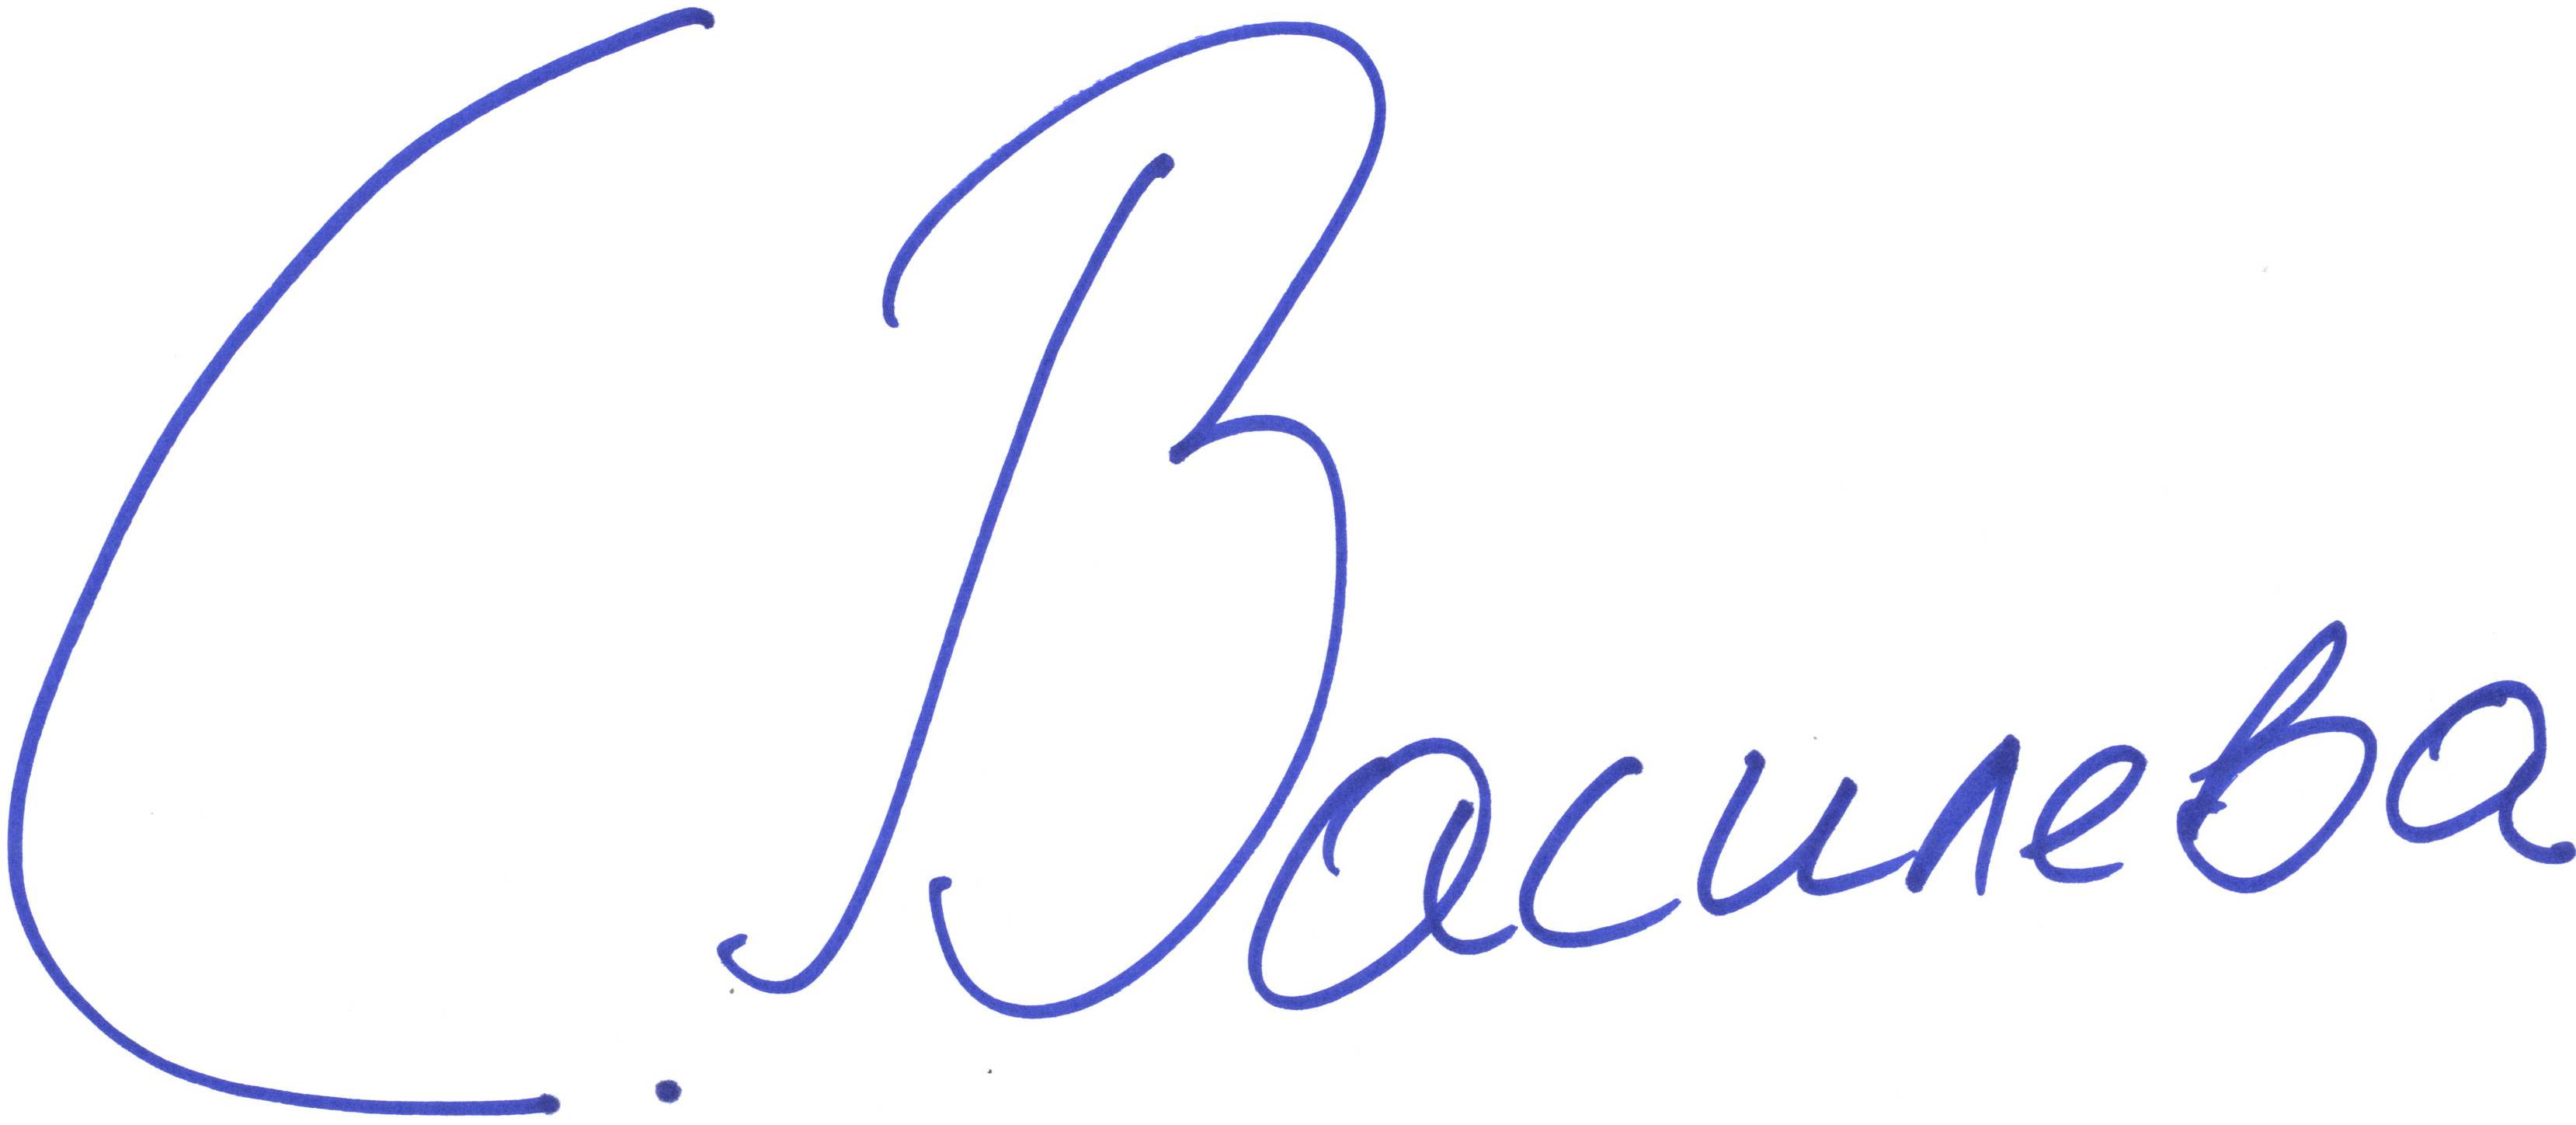 С. Василева